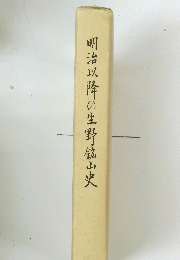 明治以降の生野鉱山史